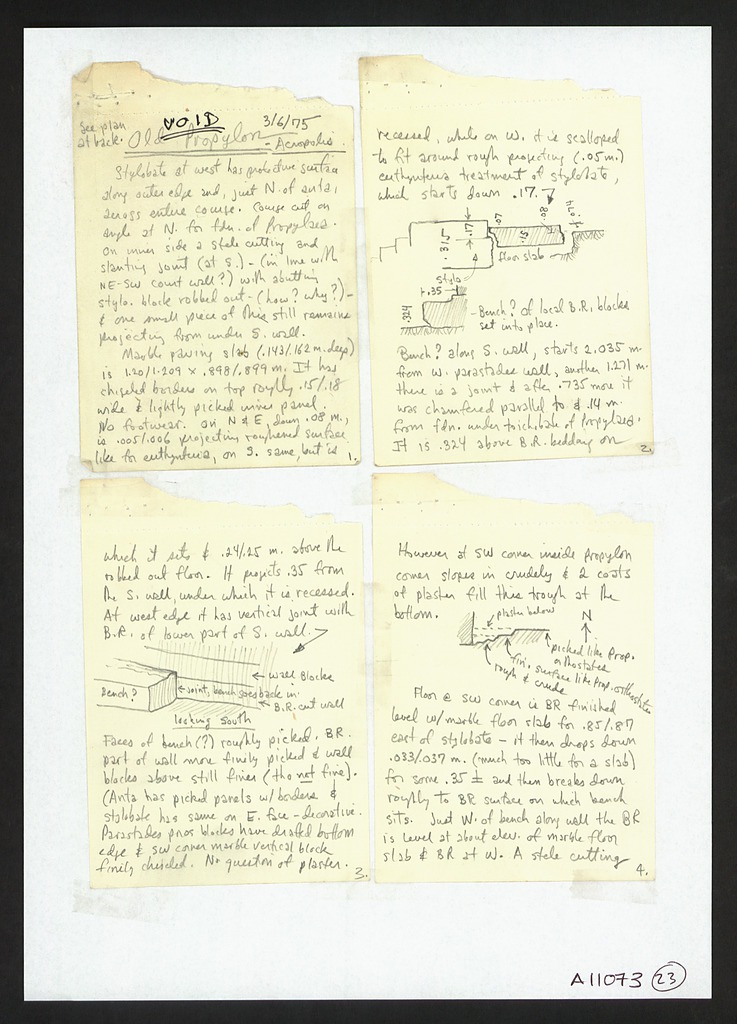 See plan
at back.
VOID
3/6/75
Old Propylon
- Acropolis
Stylobate at west has protective surface
along outer edge and, just N. of anta,
across entire course. Course cut on
angle at N. for fdn. of Propylaea.
On inner side a stele cutting and
slanting joint (at S.) - (in line with
NE-SW court wall?) with abutting
stylo. block robbed out - (how? why?) -
& one small piece of this still remains
projecting from under S. wall.
Marble paving slab (.143/.162 m. deep)
is 1.20/1.209 x .898/.899 m. It has
chiseled borders on top roughly .15/.18
wide & lightly picked inner panel.
No footwear. On N & E, down .08 m.,
is .005/.006 projecting roughened surface
like for euthynteria, on S. same, but is
1.
recessed, while on W. it is scalloped
to fit around rough projecting (.05 m.)
euthynteria treatment of stylobate,
which starts down .17.
.07
.08
.074
.17
.315
.15
floor slab
Stylo
.35
.324
- Bench? of local B.R. blocks
set into place.
Bench? along S. wall, starts 2.035 m.
from W. parastades wall, another 1.271 m.
there is a joint & after .735 more it
was chamfered parallel to & .14 m.
from fdn. under toichobate of Propylaea.
It is .324 above B.R. bedding on
2.
which it sits & .24/.25 m. above the
robbed out floor. It projects .35 from
the S. wall, under which it is recessed.
At west edge it has vertical joint with
B.R. of lower part of S. wall.
Wall Blocks
Bench?
Joint, bench goes back in
B.R. cut wall
looking South
Faces of bench (?) roughly picked. BR
part of wall more finely picked & wall
blocks above still finer (tho not fine).
(Anta has picked panels w/ borders &
stylobate has same on E. face - decorative.
Parastades poros blocks have drafted bottom
edge & SW corner marble vertical block
finely chiseled. No question of plaster.
3.
However at SW corner inside propylon
corner slopes in crudely & 2 coats
of plaster fill this trough at the
bottom.
plaster below
N
picked like Prop.
orthostates
fin. surface like Prop. orthostates
rough & crude
Floor @ SW corner is BR finished
level w/ marble floor slab for .85/.87
east of stylobate - it then drops down
.033/.037 m. (much too little for a slab)
for some .35 ± and then breaks down
roughly to BR surface on which bench
sits. Just W. of bench along wall the BR
is level at about elev. of marble floor
slab & BR at W. A stele cutting
4.
A11073 23